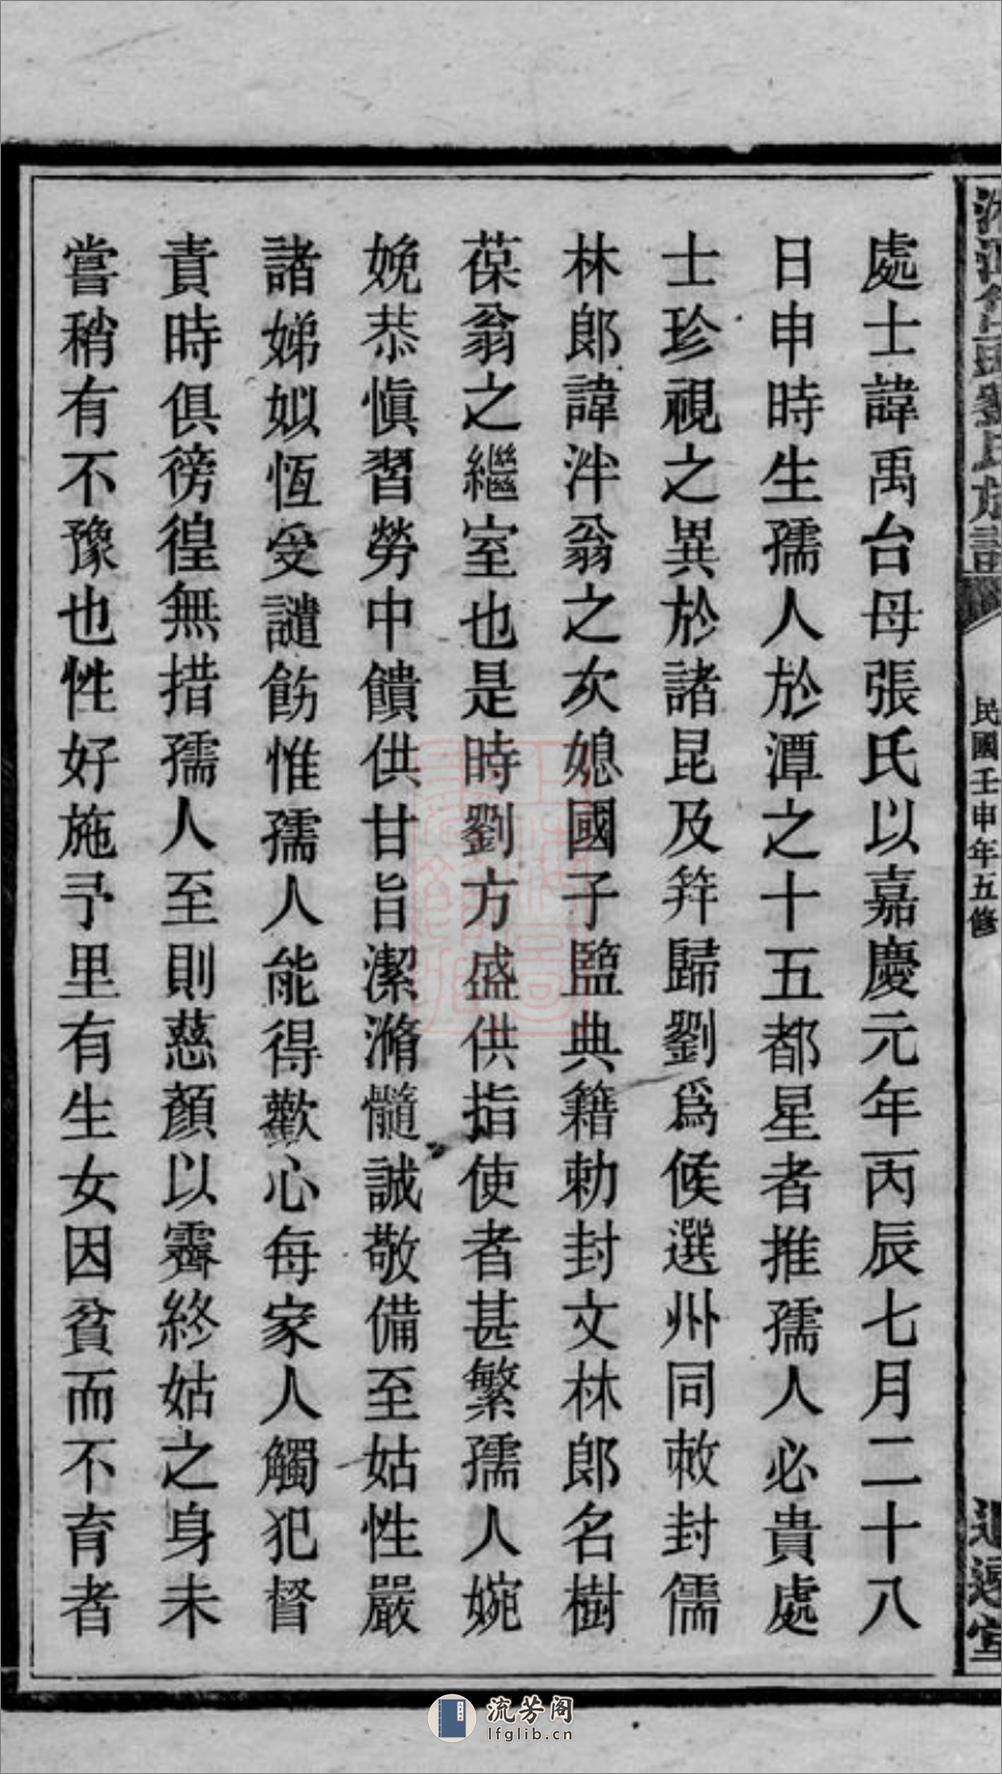 劉氏族譜
民國壬申年五修
處士諱禹台母張氏以嘉慶元年丙辰七月二十八
日申時生孺人於潭之十五都星者推孺人必貴處
士珍視之異於諸昆及筓歸劉爲候選州同敕封儒
林郎諱泮翁之次媳國子監典籍勅封文林郎名樹
葆翁之繼室也是時劉方盛供指使者甚繁孺人婉
娩恭愼習勞中饋供甘旨潔滫髓誠敬備至姑性嚴
諸娣姒恆受譴飭惟孺人能得歡心每家人觸犯督
責時俱徬徨無措孺人至則慈顏以霽終姑之身未
嘗稍有不豫也性好施予里有生女因貧而不育者
流芳阁
lfglib.cn